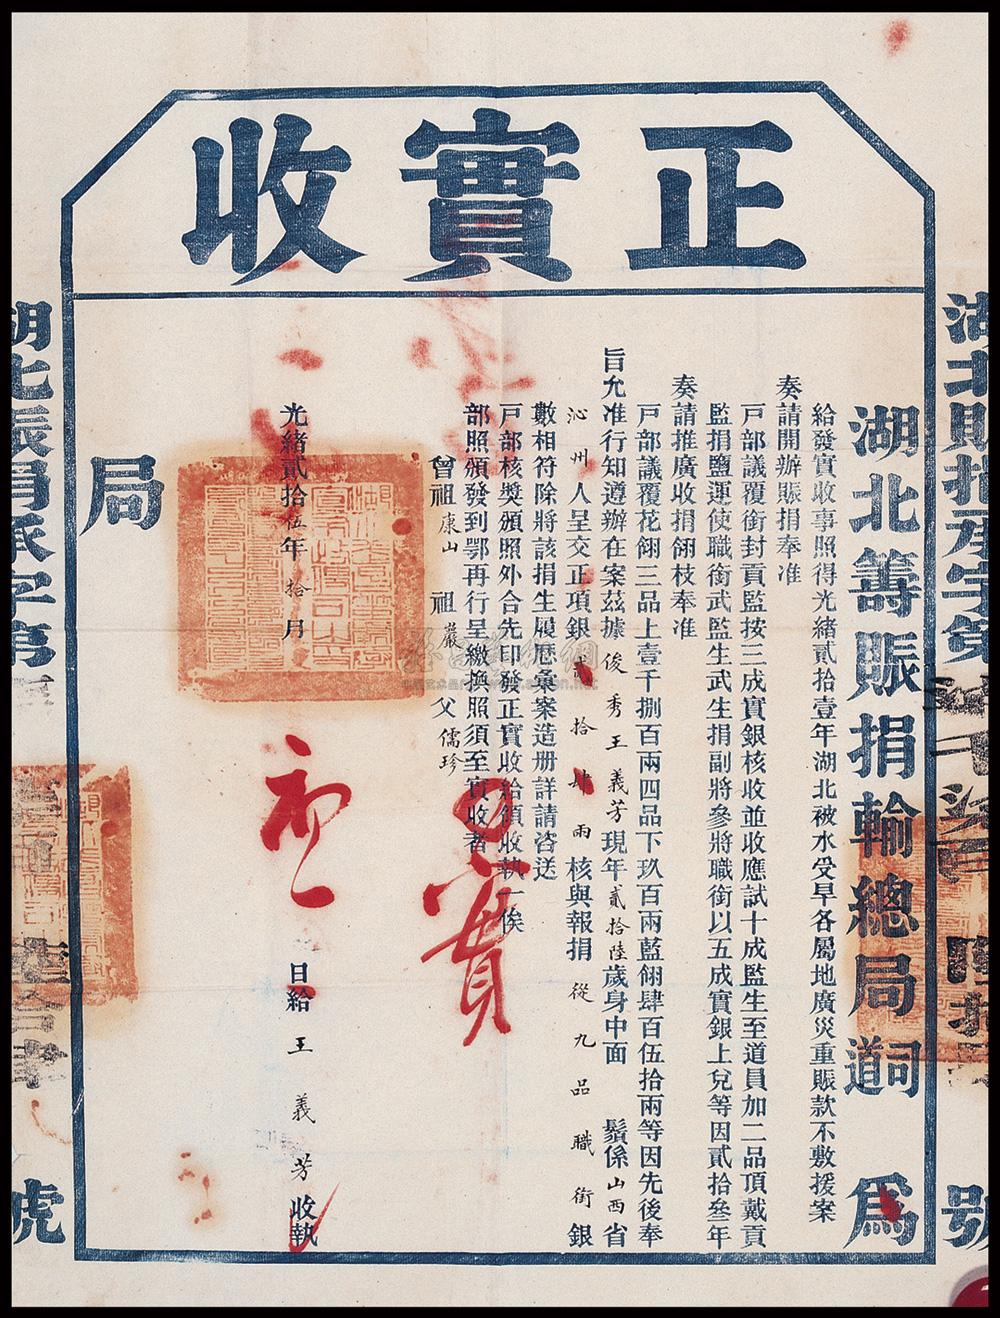 正實收
湖北籌賑捐輸總局司道為
給發實收事照得光緒貳拾壹年湖北被水受旱各屬地廣災重賑款不敷援案
奏請開辦賑捐奉准
戶部議覆銜封貢監按三成實銀核收並收應試十成監生至道員加二品頂戴貢
監捐鹽運使職銜武監生武生捐副將參將職銜以五成實銀上兌等因貳拾叁年
奏請推廣收捐翎枝奉准
戶部議覆花翎三品上壹千捌百兩四品下玖百兩藍翎肆百伍拾兩等因先後奉
旨允准行知遵辦在案茲據俊秀王義芳現年貳拾陸歲身中面 鬚係山西省
沁州人呈交正項銀貳拾肆兩核與報捐從九品職銜銀
數相符除將該捐生履歷彙案造册詳請咨送
戶部核獎頒照外合先印發正實收給領收執一俟
部照頒發到鄂再行呈繳換照須至實收者
曾祖康山 祖嚴 父儒珍
實
光緒貳拾伍年拾月 日給王義芳收執
局
湖北賑捐承字第
號
湖北賑捐承字第
號